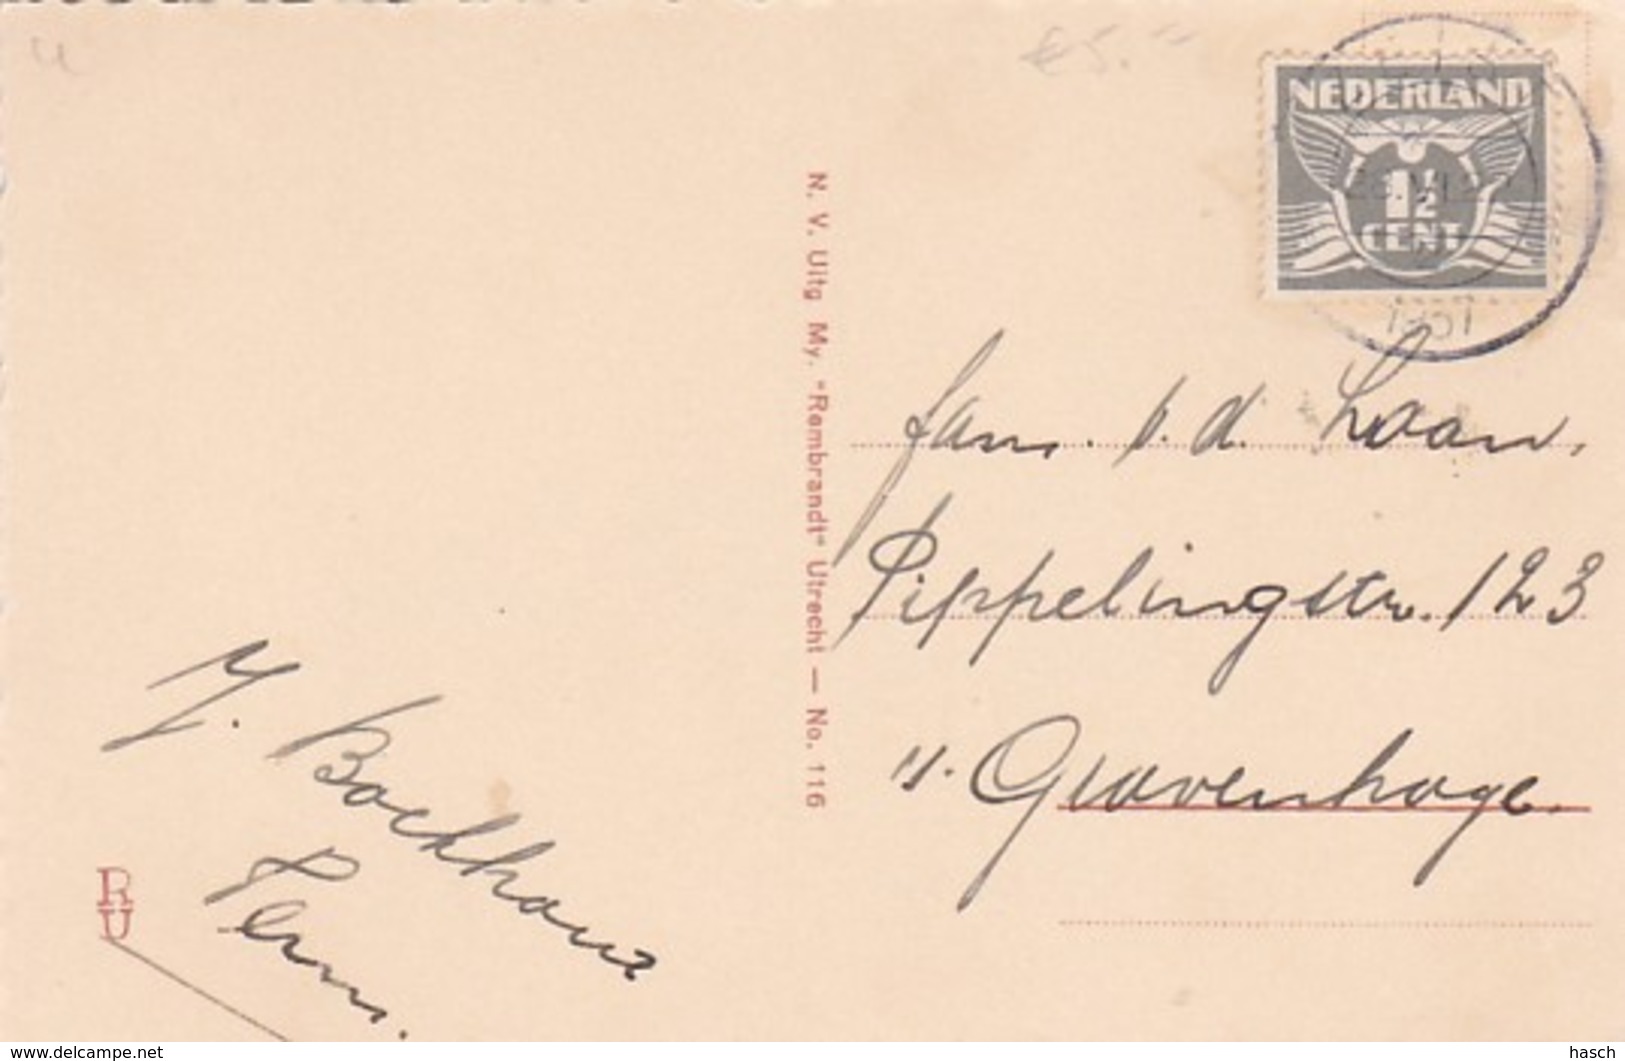 €5.-
NEDERLAND
1½
CENT
1937
N. V. Uitg My. "Rembrandt" Utrecht — No. 116
Fam. v. d. Laan,
Pippelingstr. 123
's. Gravenhage.
J. Boekhout
Pern.
RU
www.delcampe.net
hasch